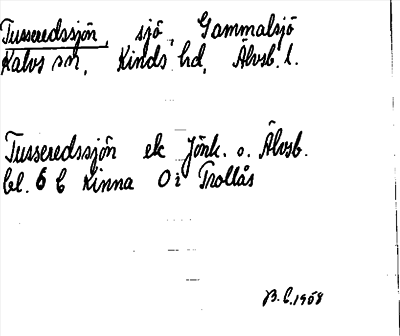 Tusseredssjön, sjö Gammalsjö
Kalvs sn, Kinds hd, Älvsb. l.
Tusseredssjön ek Jönk. o. Älvsb.
bl. 6 C Kinna 0 i Trollås
B.C. 1958